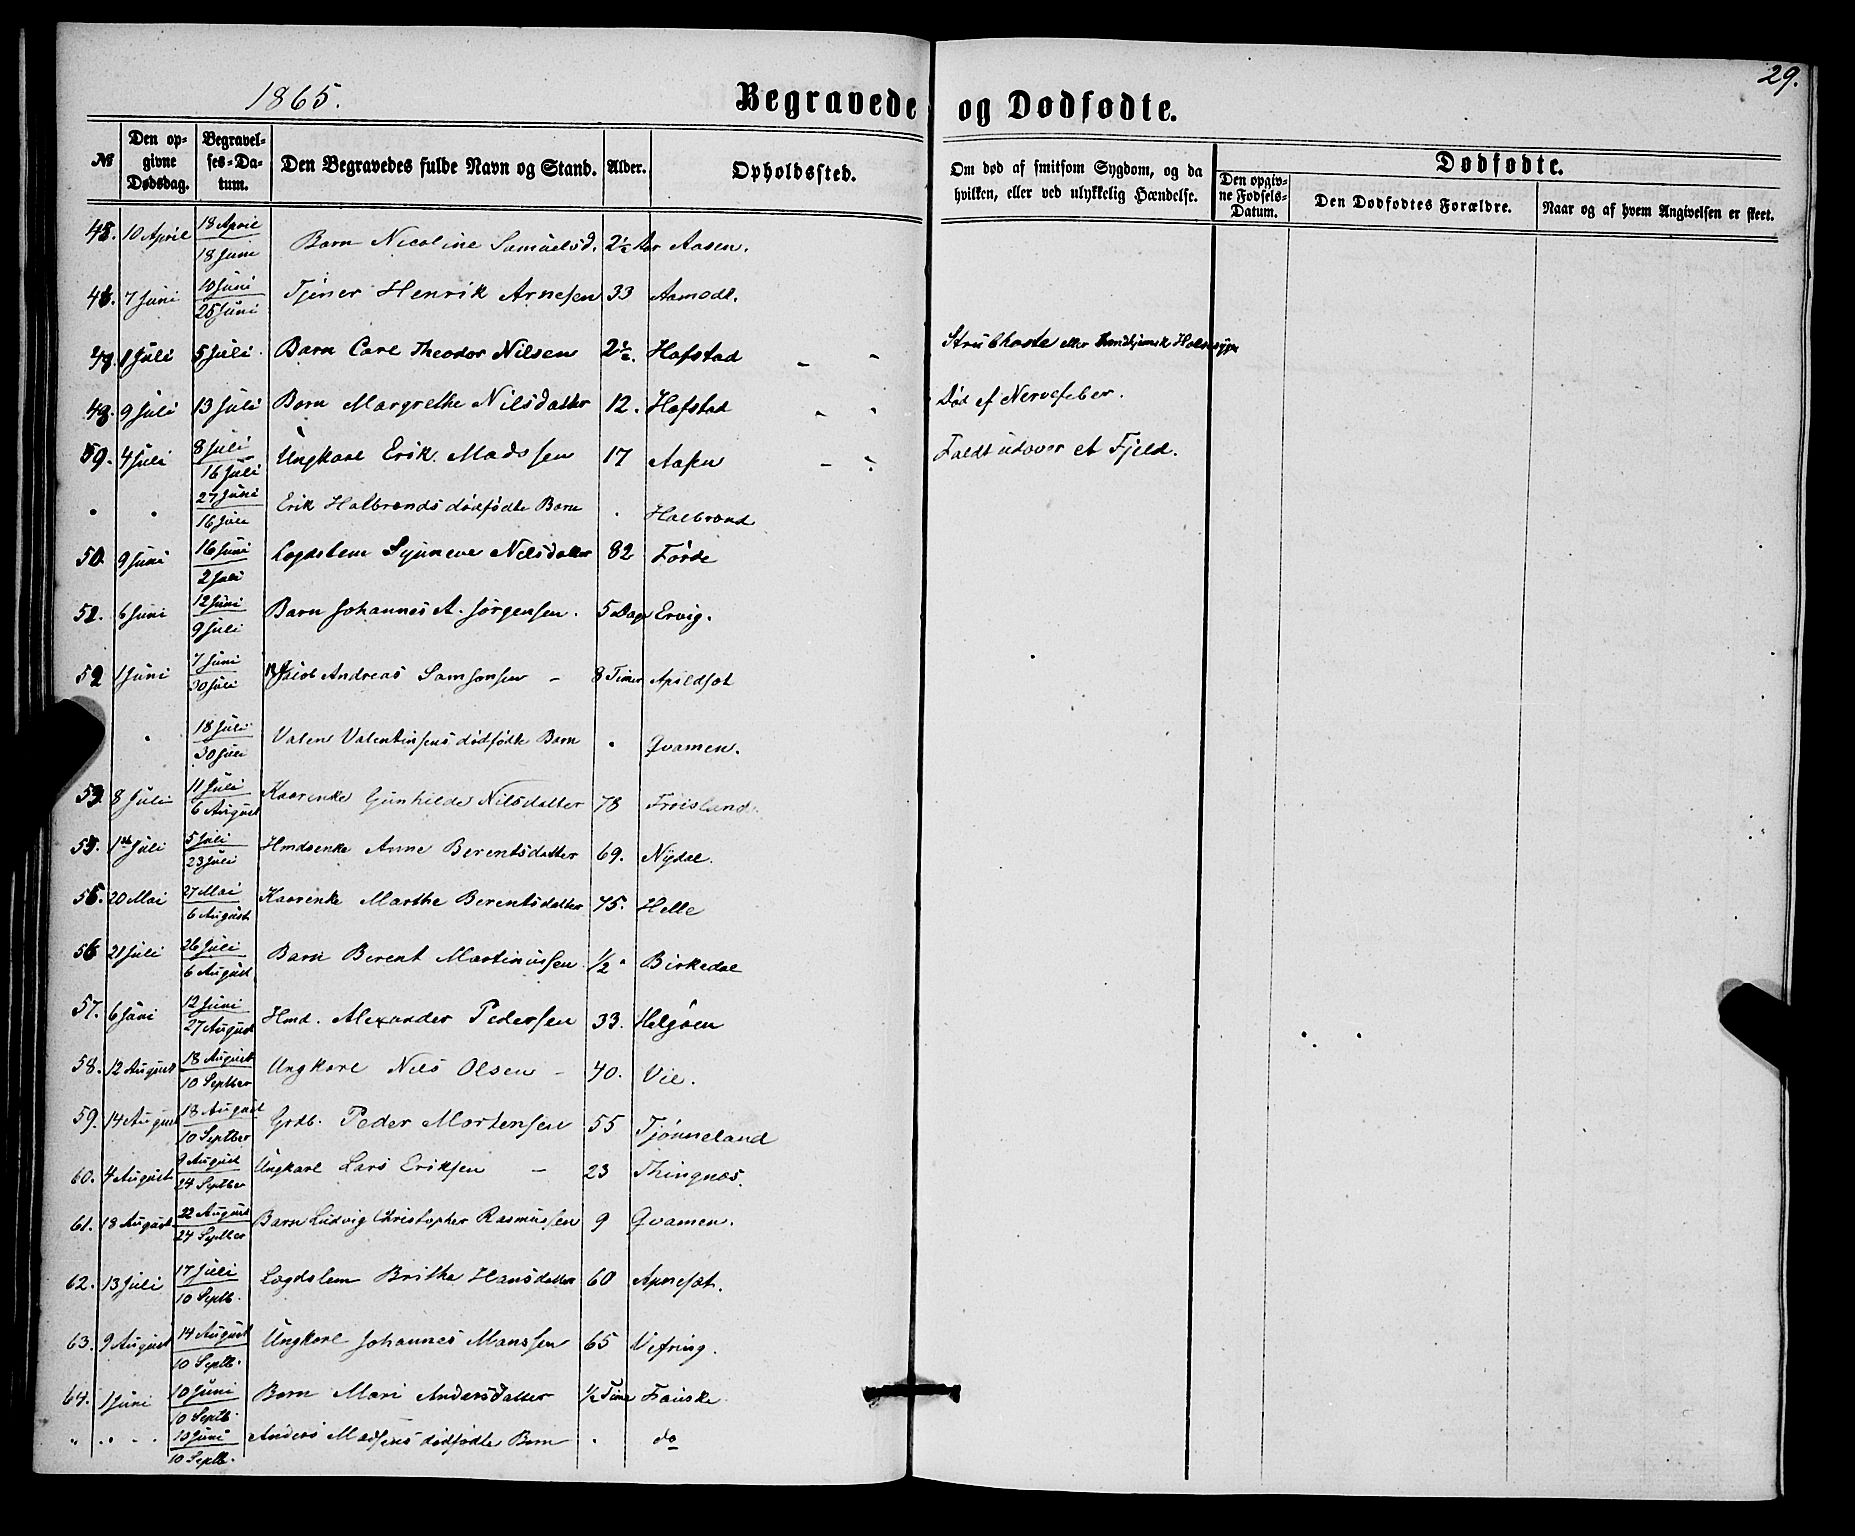 29.
1865.
Begravede og Dødfødte.
№ Den opgivne Dødsdag. Begravelses-Datum. Den Begravedes fulde Navn og Stand. Alder. Opholdssted. Om død af smitsom Sygdom, og da hvilken, eller ved ulykkelig Hændelse. Dødfødte. Den opgivne Fødsels-Datum. Den Dødfødtes Forældre. Naar og af hvem Angivelsen er skeet.
10 April 18 April 18 Juni Barn Nicoline Samuelsd. 2½ Aar Aasen.
7 Juni 10 Juni 25 Juni Tjener Henrik Arnesen 33 Aamodt.
1 Juli 5 Juli Barn Carl Theodor Nilsen 2½. Hafstad " " Strubehoste eller
9 Juli 13 Juli Barn Margrethe Nilsdatter 12. Hafstad " " Død af Nervefeber.
4 Juli 8 Juli 16 Juli Ungkarl Erik Madssen 17 Aasen " " Faldt udover et Fjeld.
" " 27 Juni 16 Juli Erik Halbrends dødfødte Barn " Halbrend
50. 9 Juni 16 Juni 2 Juli Lægdslem Synneve Nilsdatter 82 Førde
51. 6 Juni 12 Juni 9 Juli Barn Johannes A. Jørgensen. 5 Dage Ervig.
52 1 Juni 7 Juni 30 Juli Jacob Andreas Samsonsen - 8 Timer Apildsæt
" 18 Juli 30 Juli Valen Valentinsens dødfødte Barn " Qvamen.
53. 8 Juli 11 Juli 6 August Kaarenke Gunhilde Nilsdatter 78 Frøisland.
1ste Juli 5 Juli 23 Juli Hmdsenke Anne Berentsdatter 69. Nydal.
55. 20 Mai 27 Mai 6 August Kaarenke Marthe Berentsdatter 75. Helle
56 21 Juli 26 Juli 6 August Barn Berent Martinussen ½ " Birkedal
57. 6 Juni 12 Juni 27 August Hmd. Alexander Pedersen 33. Helgøen
58. 12 August 18 August 10 Septber Ungkarl Nils Olsen - 40. Vie.
59. 14 August 18 August 10 Septber Grdb. Peder Mortensen 55 Tjønneland
60. 4 August 9 August 24 Septber Ungkarl Lars Eriksen - 23 Thingnæs.
61. 18 August 22 August 24 Septber Barn Ludvig Christopher Rasmussen 9 Qvamen.
62. 13 Juli 17 Juli 10 Septb. Lægdslem Brithe Hansdatter 60
63. 9 August 14 August 10 Septb. Ungkarl Johannes Manssen 65 Vefring.
64. 1 Juni 10 Juni 10 Septb. Barn Mari Andersdatter ½ Time Fauske
" " " " 10 Juni 10 Septb. Anders Madsens dødfødte Barn " do